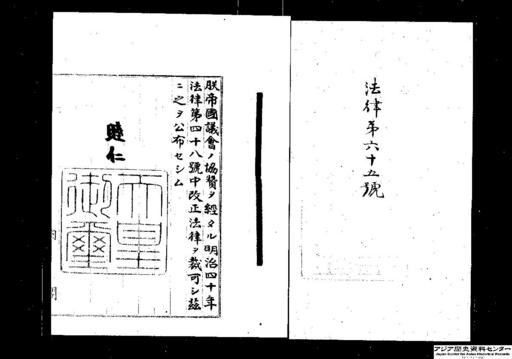 法律第六十五號
朕帝國議會ノ協贊ヲ經タル明治四十年
法律第四十八號中改正法律ヲ裁可シ玆
ニ之ヲ公布セシム
睦仁
天皇
御璽
アジア歴史資料センター
Japan Center for Asian Historical Records